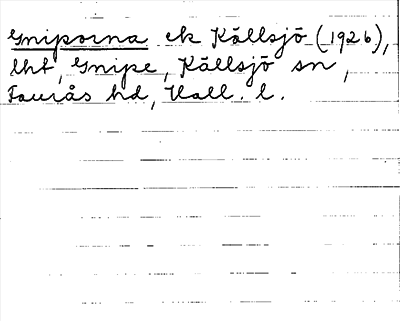 Gniporna ek Källsjö (1926),
lht, Gnipe, Källsjö sn,
Faurås hd, Hall. l.